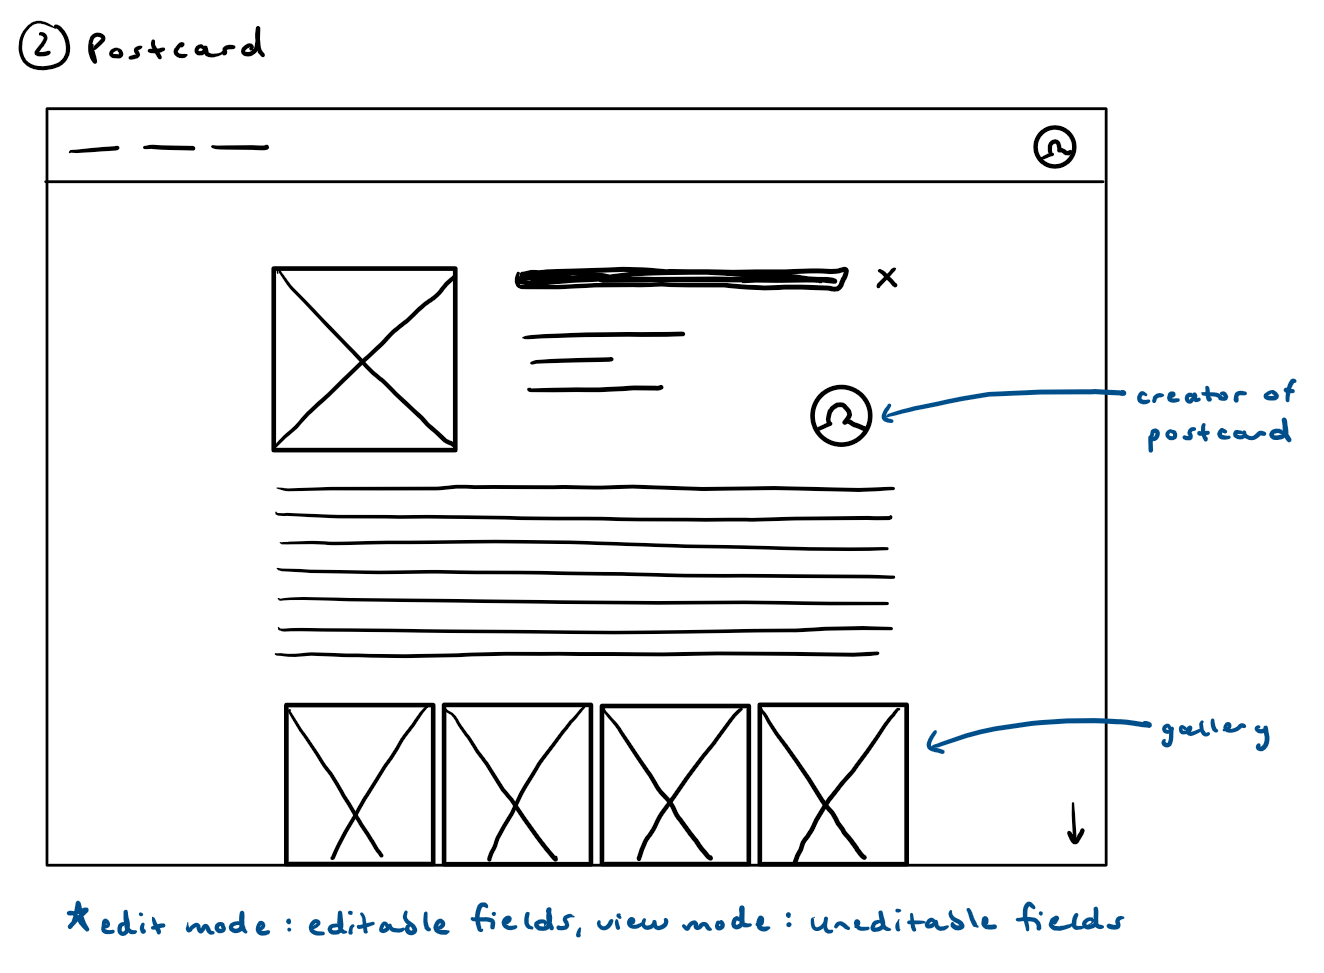 2 Postcard
creator of
postcard
gallery
* edit mode : editable fields, view mode : uneditable fields